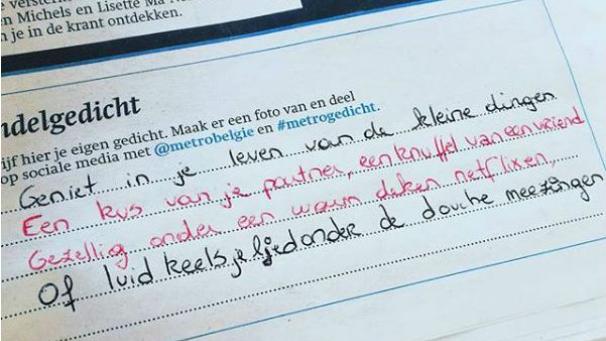 n Michels en Lisette Ma
n je in de krant ontdekken.
ndelgedicht
ijf hier je eigen gedicht. Maak er een foto van en deel
op sociale media met @metrobelgie en #metrogedicht.
Geniet in je leven van de kleine dingen
Een kus van je partner, een knuffel van een vriend
Gezellig onder een warm deken netflixen,
Of luidkeels je lied onder de douche meezingen